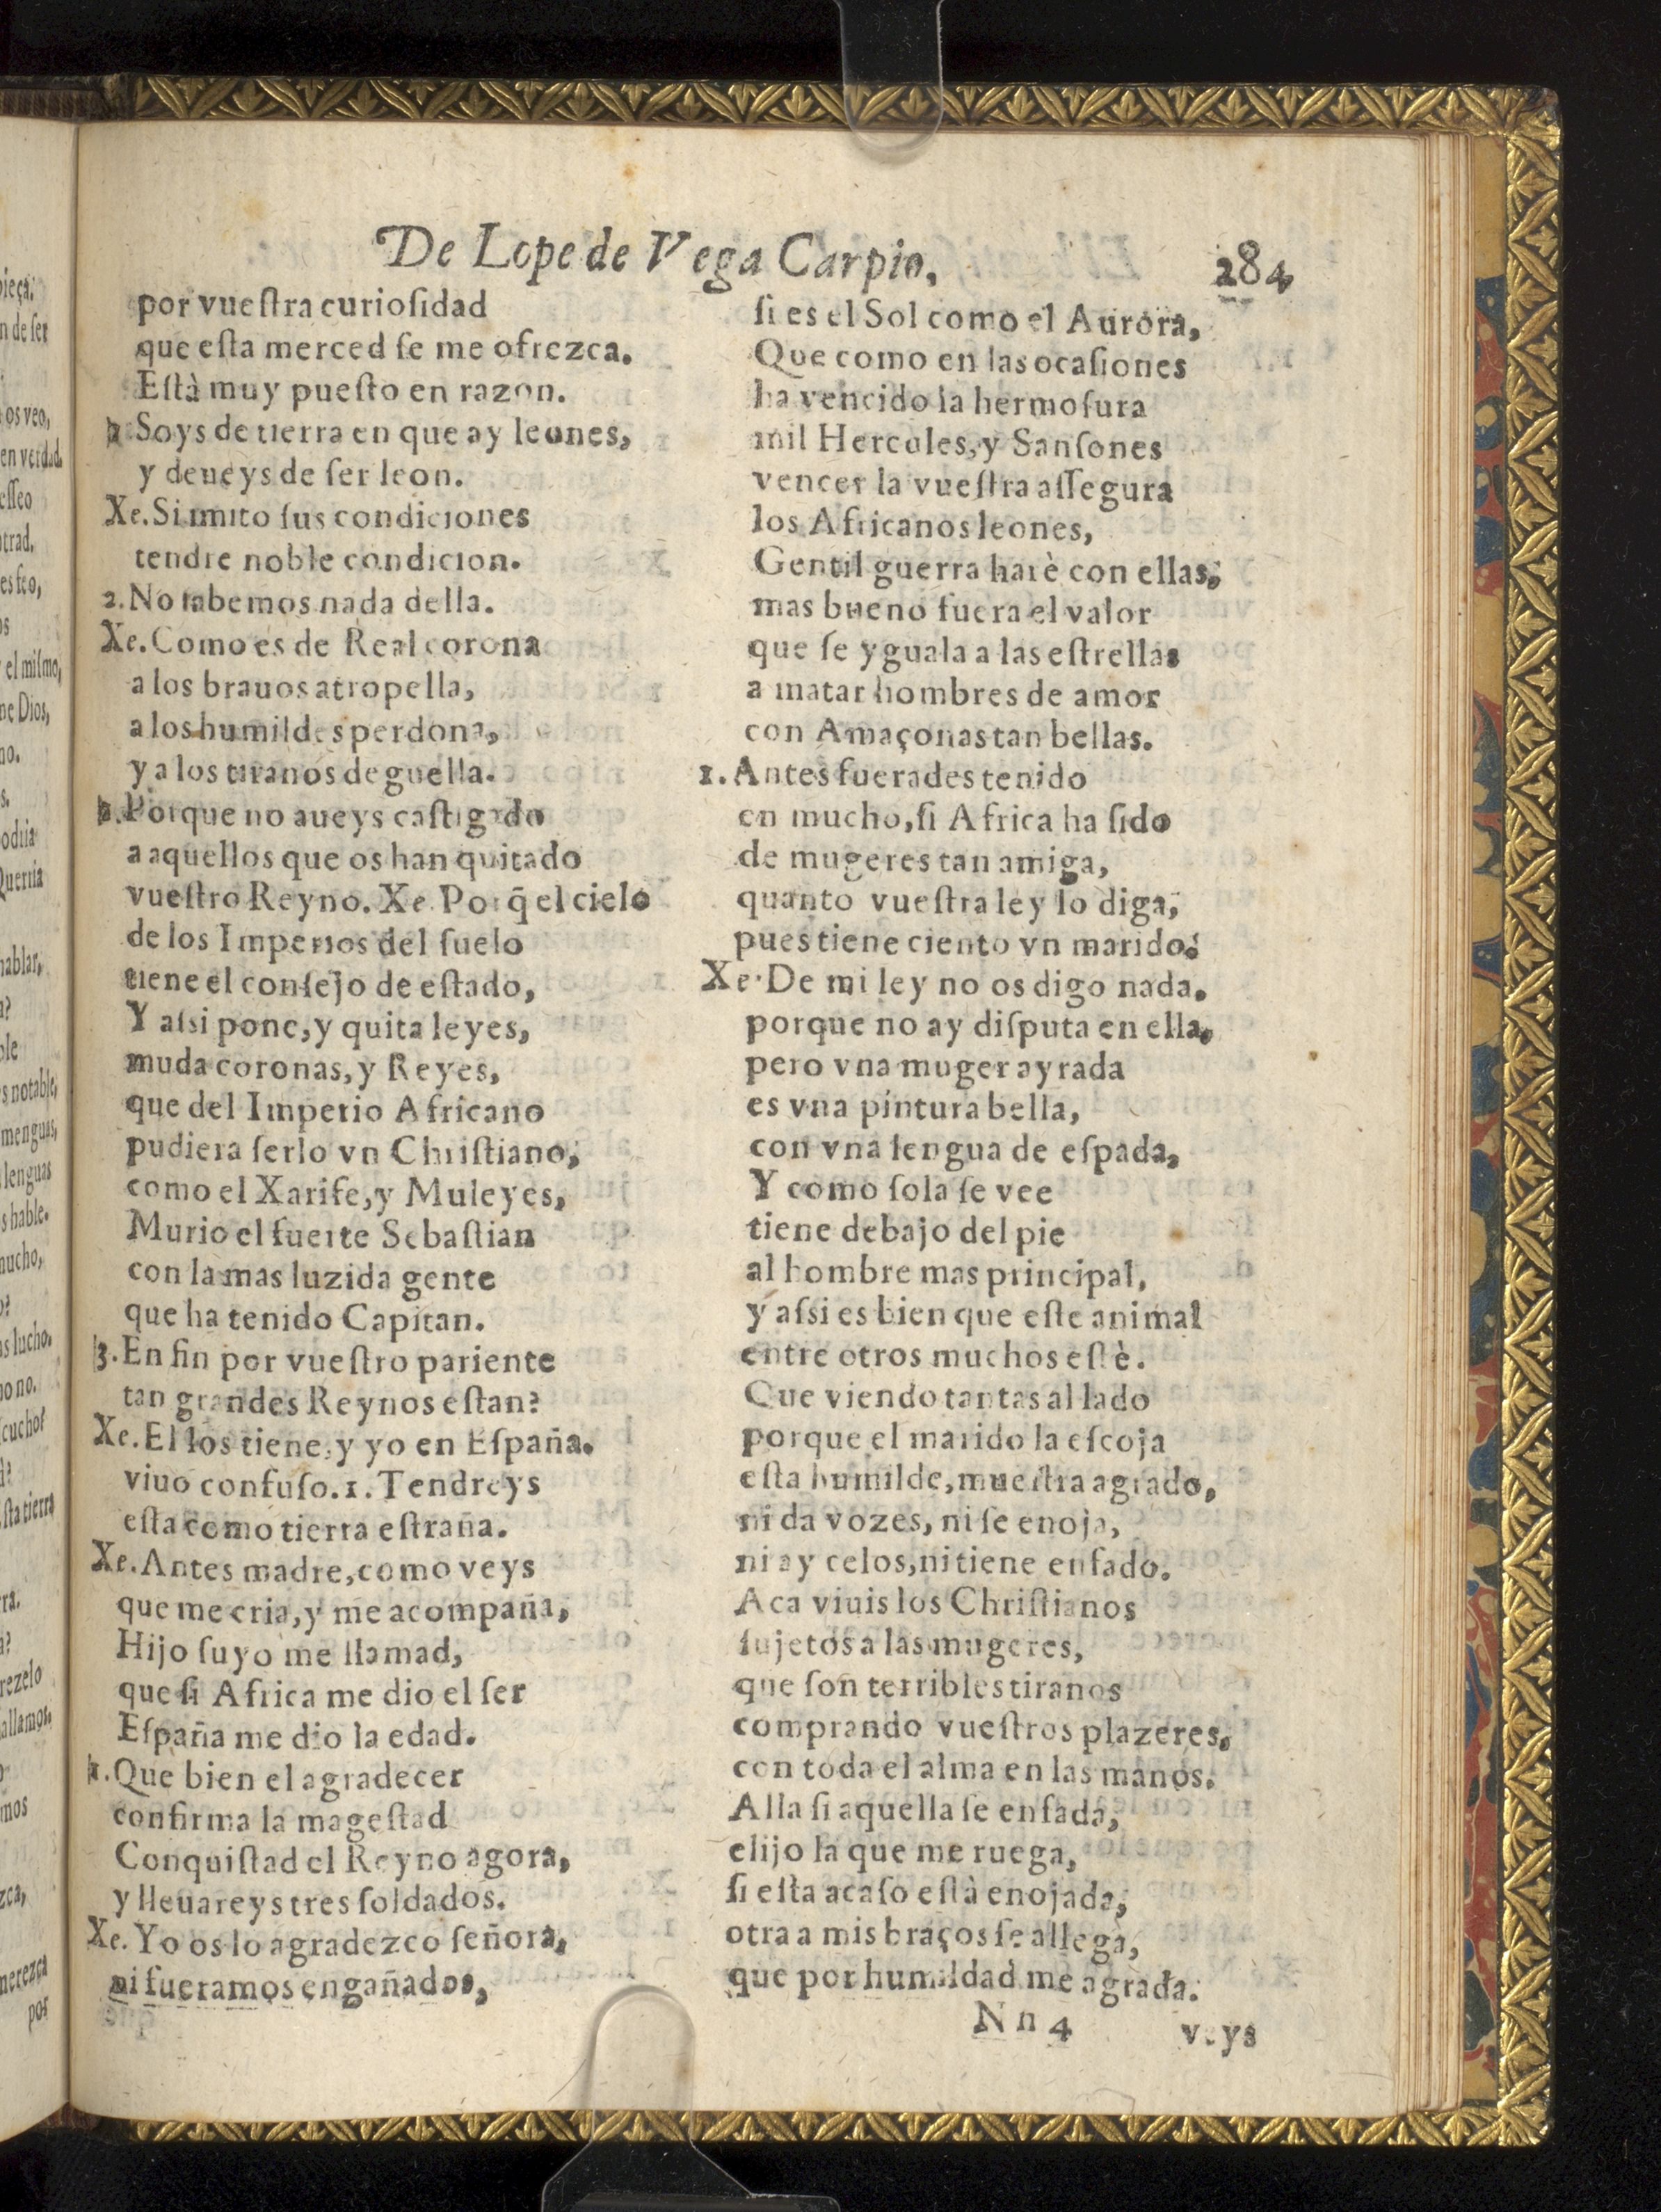 De Lope de Vega Carpio,
284
por vueſtra curioſidad
que eſta merced ſe me ofrezca.
Eſtà muy pueſto en razon.
Soys de tierra en que ay leones,
y deueys de ſer leon.
Xe. Si imito ſus condiciones
tendre noble condicion.
2. No ſabemos nada della.
Xe. Como es de Real corona
a los brauos atropella,
a los humildes perdona,
y a los tiranos deguella.
Porque no aueys caſtigado
a aquellos que os han quitado
vueſtro Reyno. Xe. Porq̃ el cielo
de los Imperios del ſuelo
tiene el conſejo de eſtado,
Y aſsi pone, y quita leyes,
muda coronas, y Reyes,
que del Imperio Africano
pudiera ſerlo vn Chriſtiano,
como el Xarife, y Muleyes,
Murio el fuerte Sebaſtian
con la mas luzida gente
que ha tenido Capitan.
3. En fin por vueſtro pariente
tan grandes Reynos eſtan?
Xe. El los tiene, y yo en Eſpaña.
viuo confuſo. 1. Tendreys
eſta como tierra eſtraña.
Xe. Antes madre, como veys
que me cria, y me acompaña,
Hijo ſuyo me llamad,
que ſi Africa me dio el ſer
Eſpaña me dio la edad.
1. Que bien el agradecer
confirma la mageſtad
Conquiſtad el Reyno agora,
y lleuareys tres ſoldados.
Xe. Yo os lo agradezco ſeñora,
ni fueramos engañados,
ſi es el Sol como el Aurora,
Que como en las ocaſiones
ha vencido la hermoſura
mil Hercules, y Sanſones
vencer la vueſtra aſſegura
los Africanos leones,
Gentil guerra harè con ellas,
mas bueno fuera el valor
que ſe yguala a las eſtrellas
a matar hombres de amor
con Amaçonas tan bellas.
1. Antes fuerades tenido
en mucho, ſi Africa ha ſido
de mugeres tan amiga,
quanto vueſtra ley lo diga,
pues tiene ciento vn marido.
Xe. De mi ley no os digo nada.
porque no ay diſputa en ella,
pero vna muger ayrada
es vna pintura bella,
con vna lengua de eſpada,
Y como ſola ſe vee
tiene debajo del pie
al hombre mas principal,
y aſsi es bien que eſte animal
entre otros muchos eſtè.
Que viendo tantas al lado
porque el marido la eſcoja
eſta humilde, mueſtra agrado,
ni da vozes, ni ſe enoja,
ni ay celos, ni tiene enfado.
Aca viuis los Chriſtianos
ſujetos a las mugeres,
que ſon terribles tiranos
comprando vueſtros plazeres,
con toda el alma en las manos.
Alla ſi aquella ſe enfada,
elijo la que me ruega,
ſi eſta acaſo eſtà enojada,
otra a mis braços ſe allega,
que por humildad me agrada.
Nn 4
veys